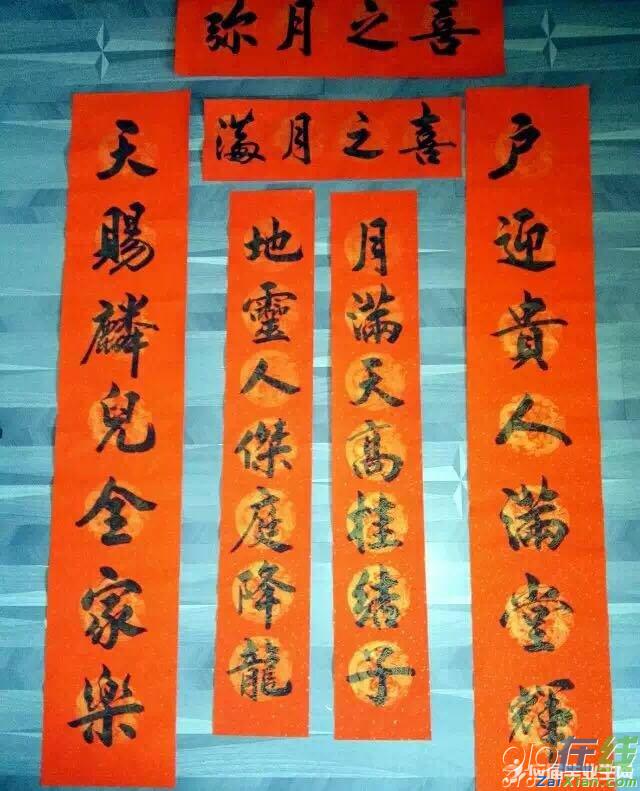 弥月之喜
满月之喜
户迎貴人满堂輝
天賜麟兒全家樂
月满天高桂结子
地靈人傑庭降龍
在线
ZaiXian.com